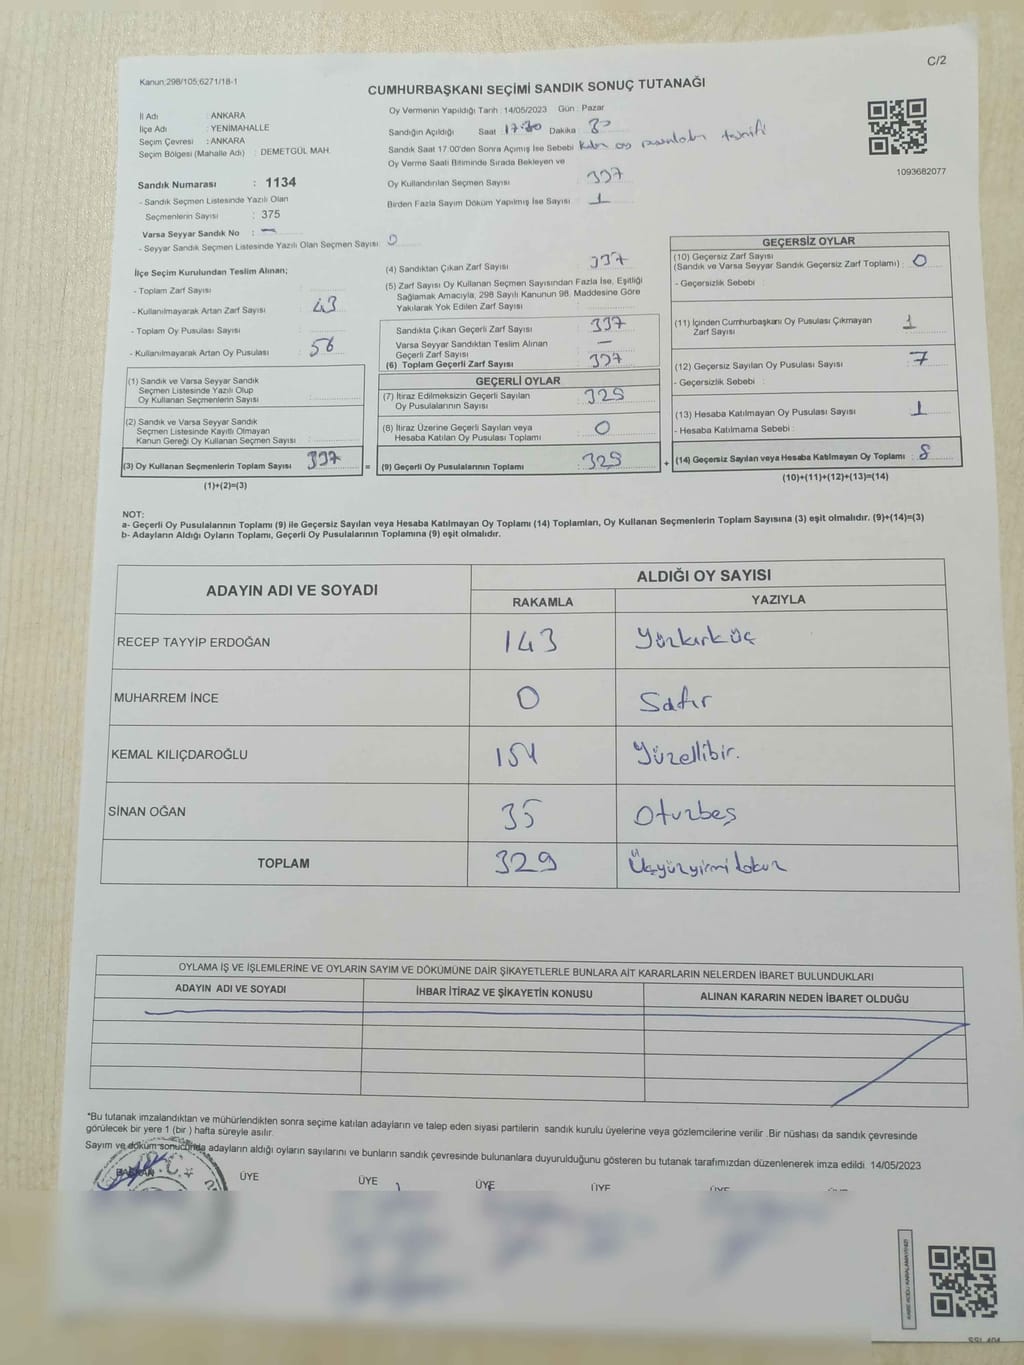 C/2
Kanun:298/105;6271/18-1
CUMHURBAŞKANI SEÇİMİ SANDIK SONUÇ TUTANAĞI
İl Adı : ANKARA
İlçe Adı : YENİMAHALLE
Seçim Çevresi : ANKARA
Seçim Bölgesi (Mahalle Adı) : DEMETGÜL MAH.
Sandık Numarası : 1134
- Sandık Seçmen Listesinde Yazılı Olan
Seçmenlerin Sayısı : 375
Varsa Seyyar Sandık No : —
- Seyyar Sandık Seçmen Listesinde Yazılı Olan Seçmen Sayısı : 0
Oy Vermenin Yapıldığı Tarih : 14/05/2023 Gün : Pazar
Sandığın Açıldığı Saat : 17:30 Dakika : 30
Sandık Saat 17.00'den Sonra Açımış İse Sebebi
Oy Verme Saati Bitiminde Sırada Bekleyen ve
Oy Kullandırılan Seçmen Sayısı : 337
Birden Fazla Sayım Döküm Yapılmış İse Sayısı : 1
1093682077
İlçe Seçim Kurulundan Teslim Alınan;
- Toplam Zarf Sayısı :
- Kullanılmayarak Artan Zarf Sayısı : 43
- Toplam Oy Pusulası Sayısı :
- Kullanılmayarak Artan Oy Pusulası : 56
(1) Sandık ve Varsa Seyyar Sandık
Seçmen Listesinde Yazılı Olup
Oy Kullanan Seçmenlerin Sayısı :
(2) Sandık ve Varsa Seyyar Sandık
Seçmen Listesinde Kayıtlı Olmayan
Kanun Gereği Oy Kullanan Seçmen Sayısı :
(3) Oy Kullanan Seçmenlerin Toplam Sayısı : 337
(1)+(2)=(3)
(4) Sandıktan Çıkan Zarf Sayısı : 337
(5) Zarf Sayısı Oy Kullanan Seçmen Sayısından Fazla İse, Eşitliği
Sağlamak Amacıyla, 298 Sayılı Kanunun 98. Maddesine Göre
Yakılarak Yok Edilen Zarf Sayısı :
Sandıkta Çıkan Geçerli Zarf Sayısı : 337
Varsa Seyyar Sandıktan Teslim Alınan
Geçerli Zarf Sayısı : —
(6) Toplam Geçerli Zarf Sayısı : 337
GEÇERLİ OYLAR
(7) İtiraz Edilmeksizin Geçerli Sayılan
Oy Pusulalarının Sayısı : 329
(8) İtiraz Üzerine Geçerli Sayılan veya
Hesaba Katılan Oy Pusulası Toplamı : 0
= (9) Geçerli Oy Pusulalarının Toplamı : 329
GEÇERSİZ OYLAR
(10) Geçersiz Zarf Sayısı
(Sandık ve Varsa Seyyar Sandık Geçersiz Zarf Toplamı) : 0
- Geçersizlik Sebebi :
(11) İçinden Cumhurbaşkanı Oy Pusulası Çıkmayan
Zarf Sayısı : 1
(12) Geçersiz Sayılan Oy Pusulası Sayısı : 7
- Geçersizlik Sebebi :
(13) Hesaba Katılmayan Oy Pusulası Sayısı : 1
- Hesaba Katılmama Sebebi :
+ (14) Geçersiz Sayılan veya Hesaba Katılmayan Oy Toplamı : 8
(10)+(11)+(12)+(13)=(14)
NOT:
a- Geçerli Oy Pusulalarının Toplamı (9) ile Geçersiz Sayılan veya Hesaba Katılmayan Oy Toplamı (14) Toplamları, Oy Kullanan Seçmenlerin Toplam Sayısına (3) eşit olmalıdır. (9)+(14)=(3)
b- Adayların Aldığı Oyların Toplamı, Geçerli Oy Pusulalarının Toplamına (9) eşit olmalıdır.
ADAYIN ADI VE SOYADI
ALDIĞI OY SAYISI
RAKAMLA YAZIYLA
RECEP TAYYİP ERDOĞAN 143 Yüzkırküç
MUHARREM İNCE 0 Sıfır
KEMAL KILIÇDAROĞLU 151 Yüzellibir.
SİNAN OĞAN 35 Otuzbeş
TOPLAM 329 Üçyüzyirmidokuz
OYLAMA İŞ VE İŞLEMLERİNE VE OYLARIN SAYIM VE DÖKÜMÜNE DAİR ŞİKAYETLERLE BUNLARA AİT KARARLARIN NELERDEN İBARET BULUNDUKLARI
ADAYIN ADI VE SOYADI İHBAR İTİRAZ VE ŞİKAYETİN KONUSU ALINAN KARARIN NEDEN İBARET OLDUĞU
*Bu tutanak imzalandıktan ve mühürlendikten sonra seçime katılan adayların ve talep eden siyasi partilerin sandık kurulu üyelerine veya gözlemcilerine verilir. Bir nüshası da sandık çevresinde
görülecek bir yere 1 (bir ) hafta süreyle asılır.
Sayım ve döküm sonucunda adayların aldığı oyların sayılarını ve bunların sandık çevresinde bulunanlara duyurulduğunu gösteren bu tutanak tarafımızdan düzenlenerek imza edildi. 14/05/2023
BAŞKAN ÜYE ÜYE ÜYE ÜYE ÜYE